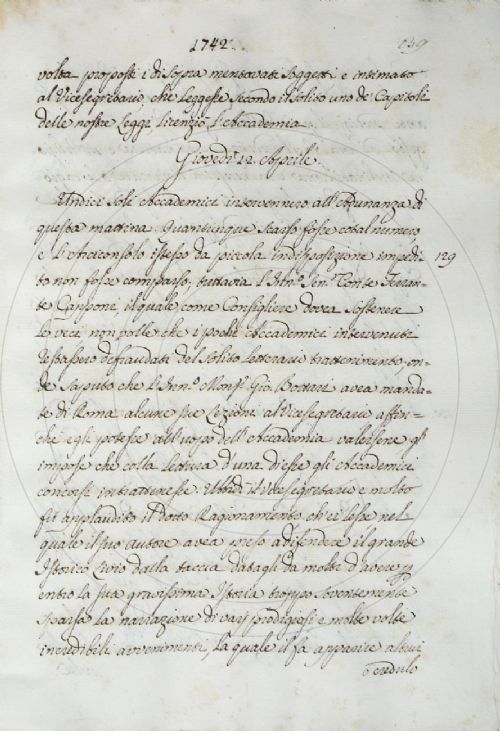 1742.
139
volta proposti i di sopra mentovati Soggetti e intimato
al Vicesegretario, che leggesse secondo il solito uno de' Capitoli
delle nostre Leggi, licenziò l'Accademia
Giovedì 12. Aprile.
Undici soli Accademici intervennero all'Adunanza di
questa mattina. Quantunque scarso fosse cotal numero
e l'Arciconsolo istesso da piccola indisposizione impedi=
129
to non fosse comparso; tuttavia l'Ill.mo Sen.r Conte Ferran=
te Capponi, il quale, come Consigliere dovea sostenere
le veci non volle che i pochi Accademici intervenuti
restassero defraudati del solito letterario trattenimento, on=
de saputo che l'Ill.mo Monsr. Gio. Bottari avea manda=
te di Roma alcune sue Lezioni al Vicesegretario affin=
chè egli potesse all'uopo dell'Accademia valersene gl'
impose che colla lettura d'una di esse gli Accademici
concorsi intrattenesse. Ubbidì il Vicesegretario e molto
fù applaudito il dotto Ragionamento ch'ei lesse nel
quale il suo autore avea preso a difendere il grande
Istorico Livio dalla taccia datagli da molti d'avere p
entro la sua gravissima Istoria troppo sovente mente
sparsa la narrazione di varj prodigiosi e molte volte
incredibili avvenimenti, la quale il fa apparire altrui
o credulo